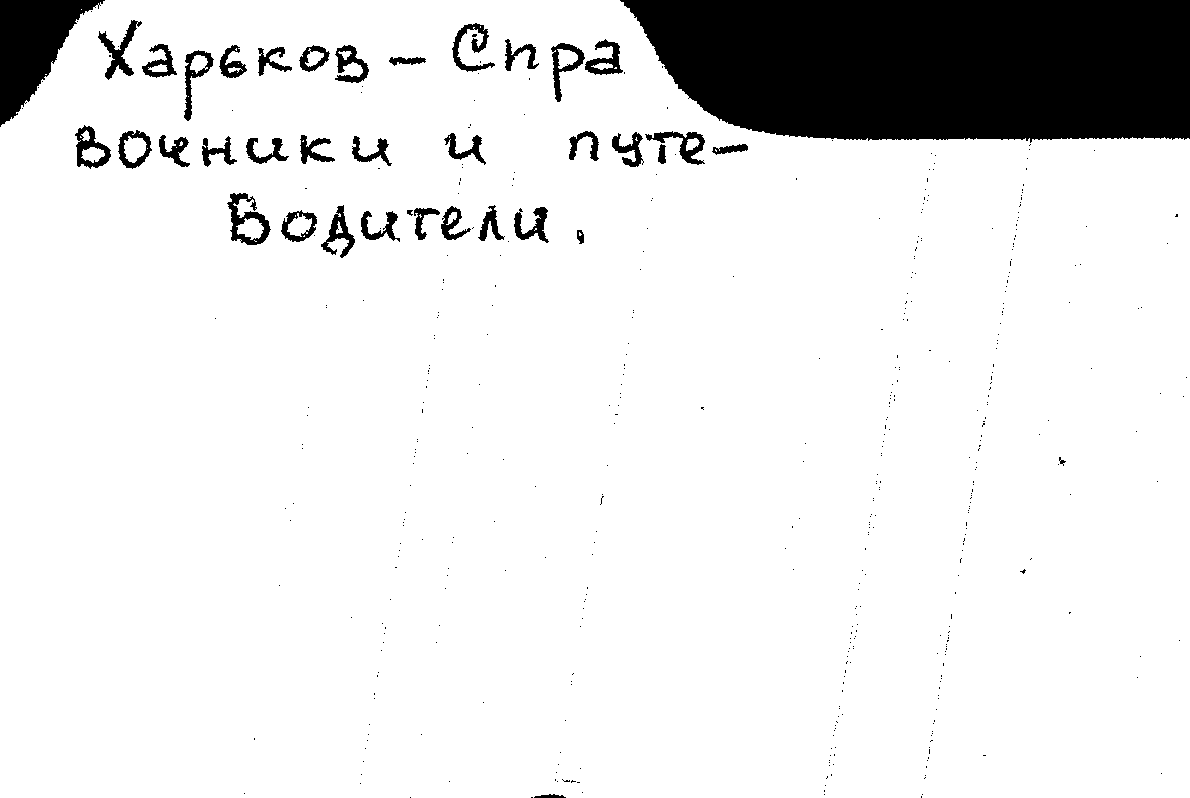 Харьков – Спра
вочники и путе-
водители.